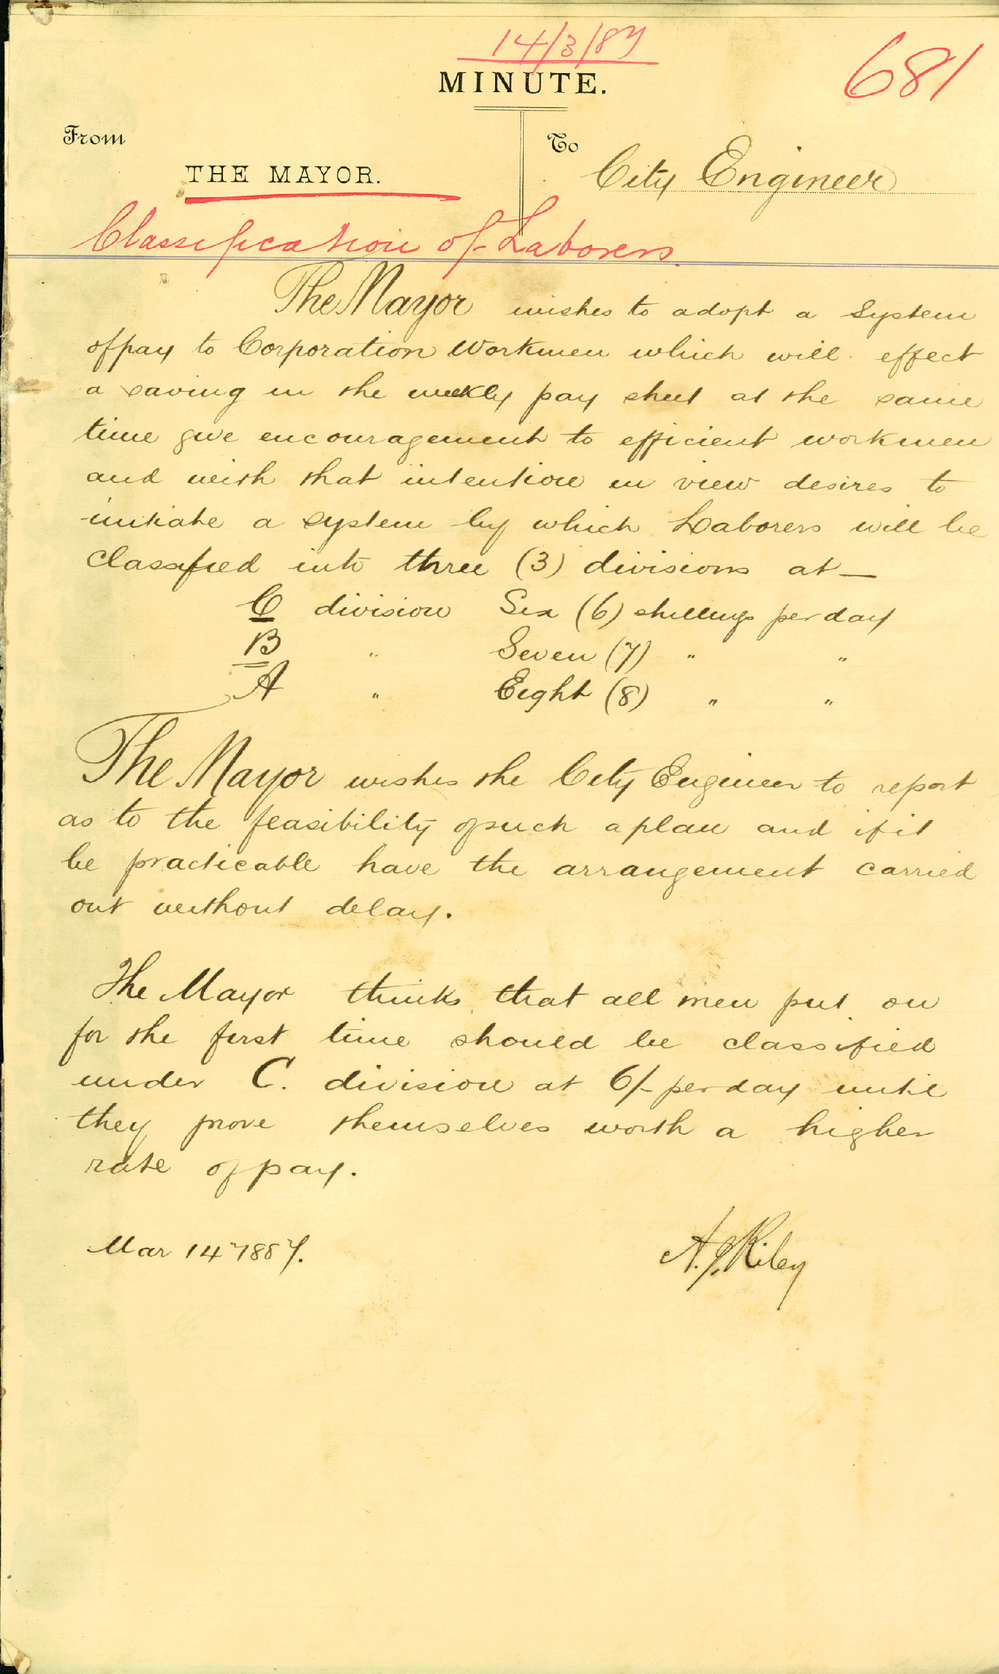 14/3/87
681
MINUTE.
From
To
THE MAYOR.
City Engineer
Classification of Laborers.
The Mayor wishes to adopt a system
of pay to Corporation Workmen which will effect
a saving in the weekly pay sheet at the same
time give encouragement to efficient workmen
and with that intention in view desires to
initiate a system by which Laborers will be
classified into three (3) divisions at—
C division Six (6) shillings per day
B " Seven (7) " "
A " Eight (8) " "
The Mayor wishes the City Engineer to report
as to the feasibility of such a plan and if it
be practicable have the arrangement carried
out without delay.
The Mayor thinks that all men put on
for the first time should be classified
under C. division at 6/- per day until
they prove themselves worth a higher
rate of pay.
Mar 14 1887.
A. J. Riley